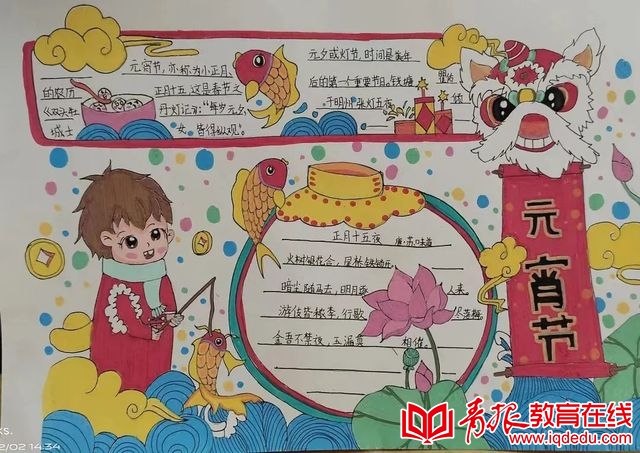 元宵节,亦称为小正月、
元夕或灯节,时间是每年
的农历
正月十五,这是春节之
后的第一个重要节日。钱塘
《双头牡
丹灯记》:“每岁元夕,
于明州张灯五夜
倾
城士
女,皆得纵观”。
元宵节
正月十五夜 唐·苏味道
火树银花合,星桥铁锁开
暗尘随马去,明月逐
人来
游伎皆秾李,行歌
尽落梅
金吾不禁夜,玉漏莫
相催
青报教育在线
www.iqdedu.com
ks.
2/02 14:34